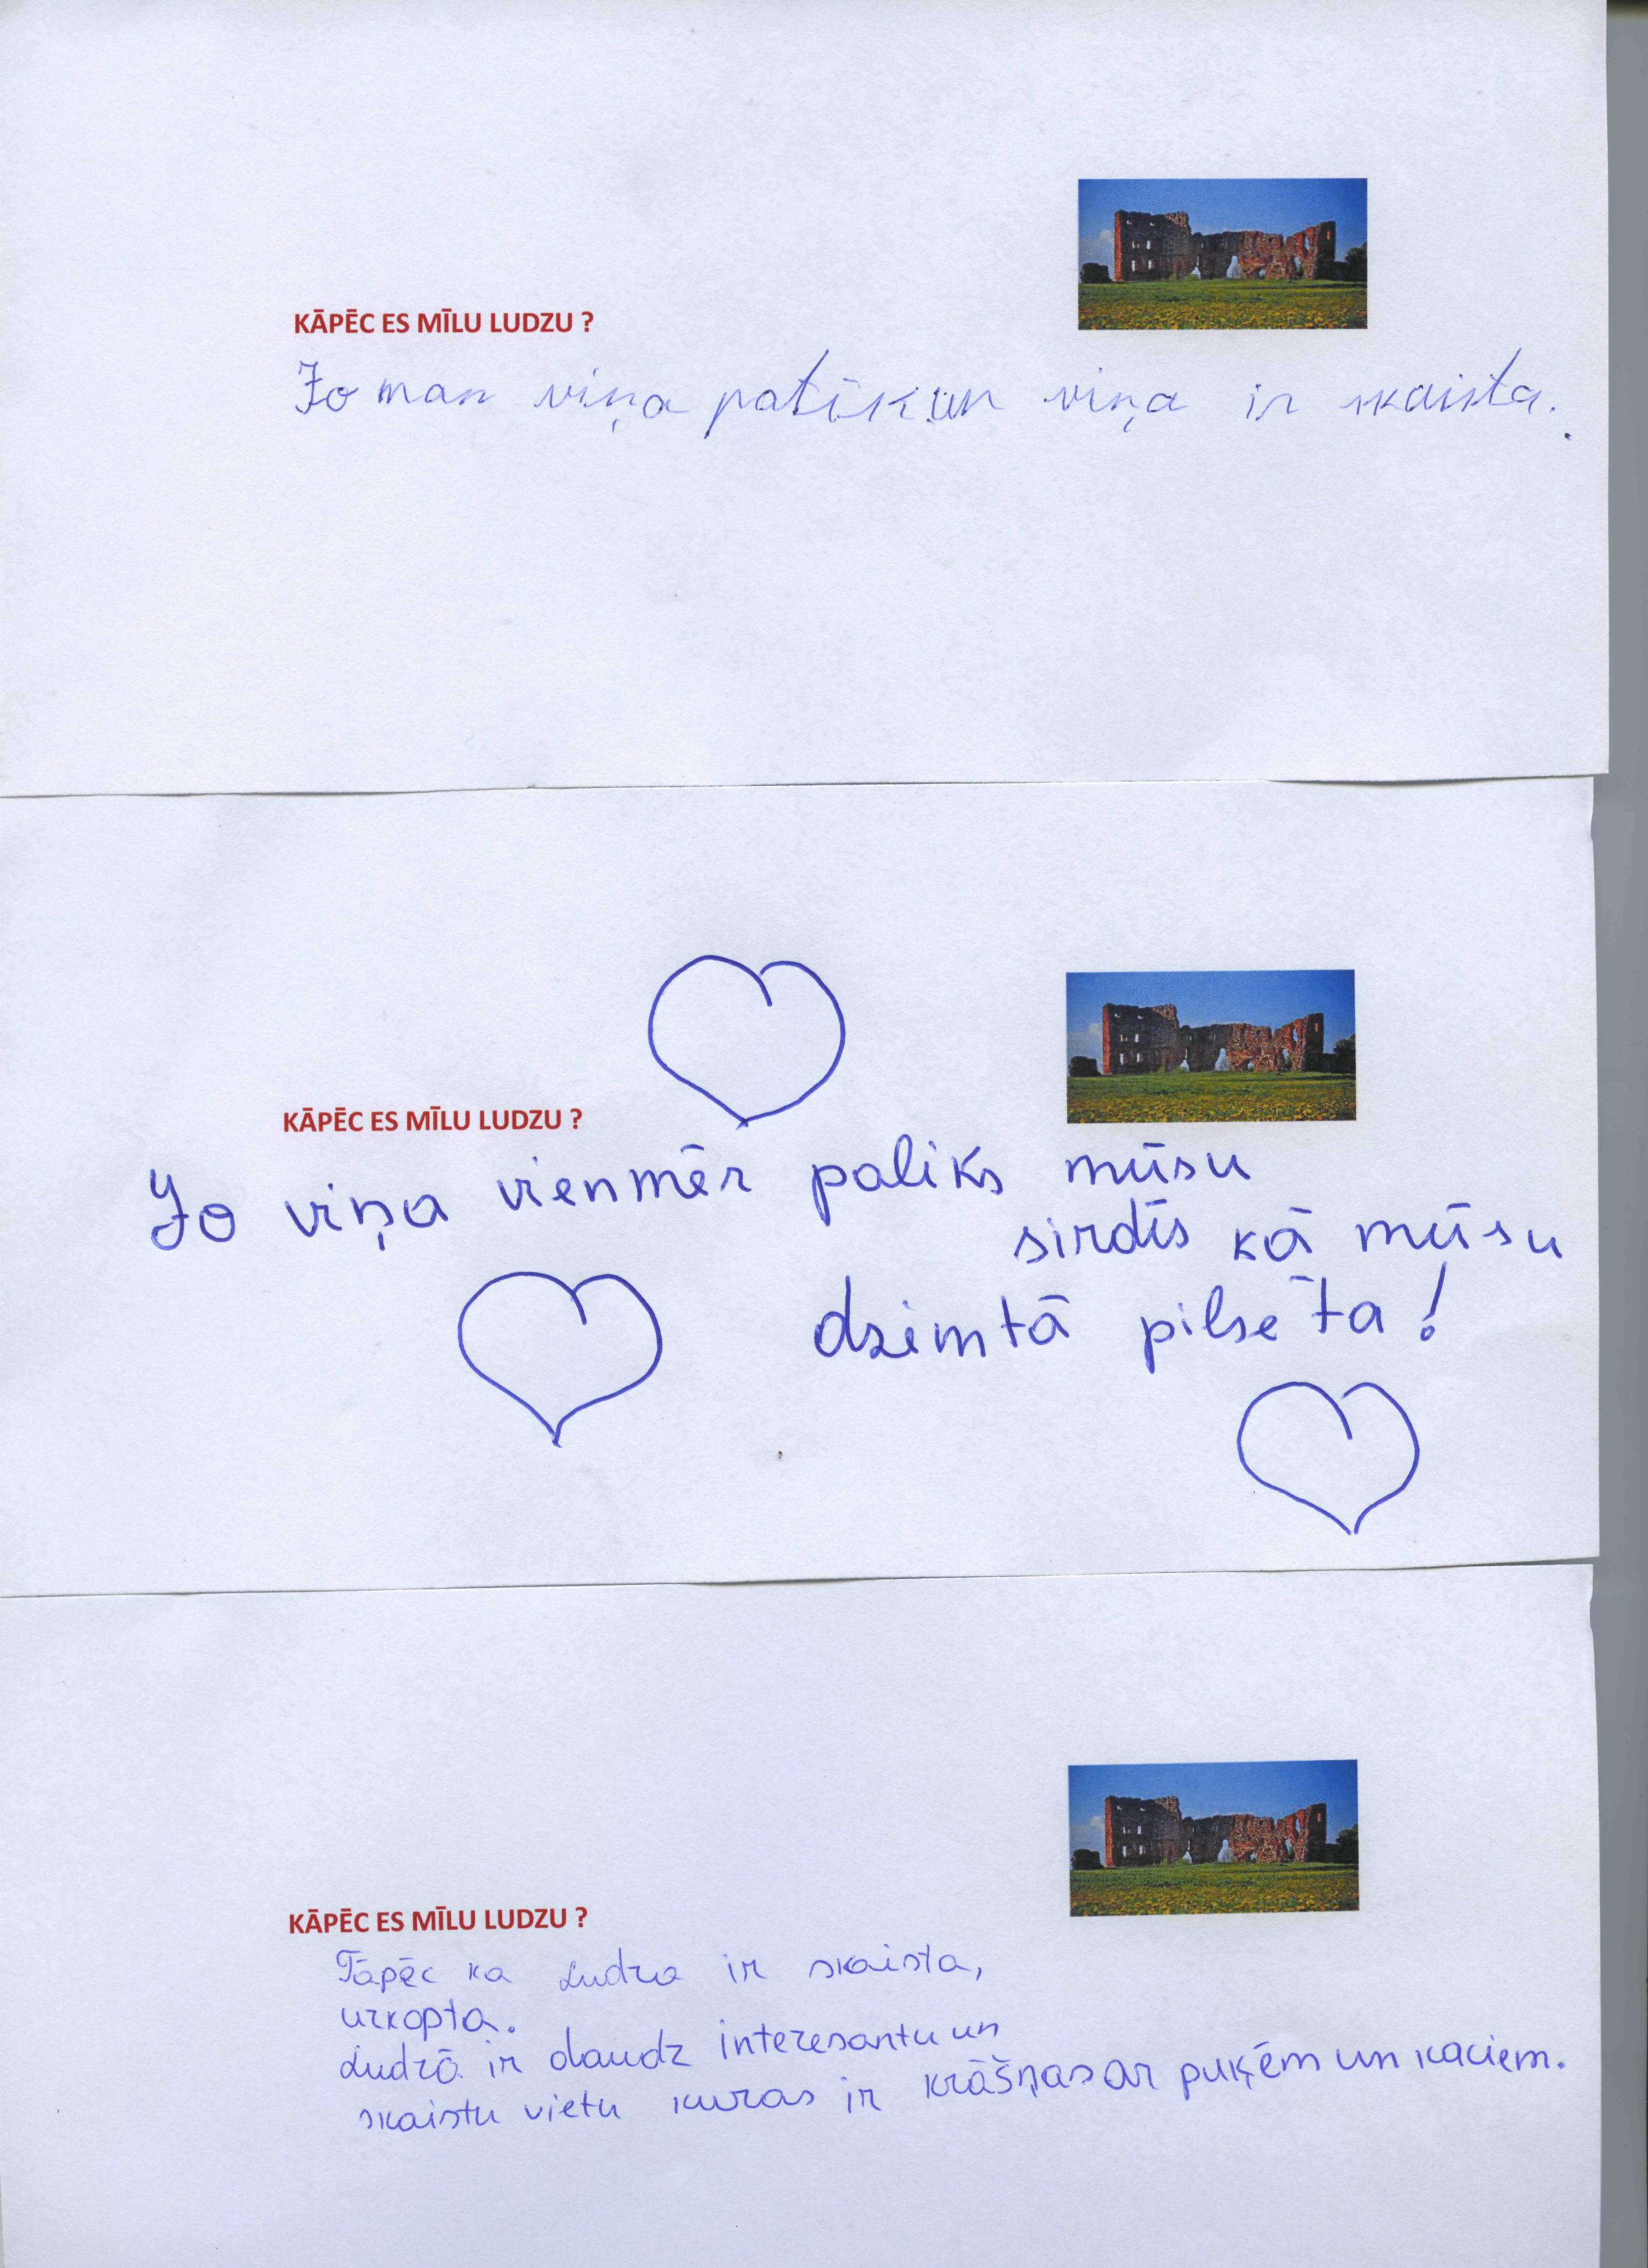 KĀPĒC ES MĪLU LUDZU ?
Jo man viņa patīk un viņa ir skaista.
KĀPĒC ES MĪLU LUDZU ?
Jo viņa vienmēr paliks mūsu
sirdīs kā mūsu
dzimtā pilsēta!
KĀPĒC ES MĪLU LUDZU ?
Tāpēc ka Ludza ir skaista,
uzkopta.
Ludzā ir daudz interesantu un
skaistu vietu kuras ir krāšņas ar puķēm un kaciem.